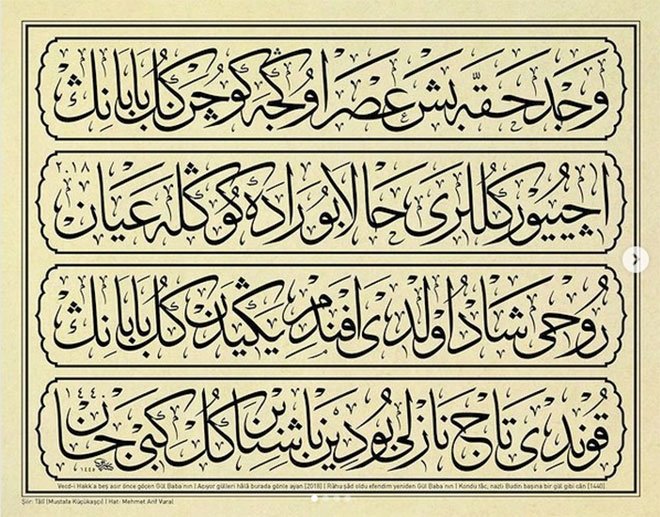 وجد حقه بش عصر اوڭجه كوچن كل بابانڭ
آچييور كللری حالا بوراده كوڭله عيان ٢٠١٨
روحی شاد اولدی افندم يڭيدن كل بابانڭ
قوندی تاج نازلی بودينڭ باشنه بر كل كبی جان ١٤٤٠
Vecd-i Hakk'a beş asır önce göçen Gül Baba'nın | Açıyor gülleri hâlâ burada gönle ayan [2018] | Rûhu şâd oldu efendim yeniden Gül Baba'nın | Kondu tâc, nazlı Budin başına bir gül gibi cân [1440].
Şiir: Tâlî (Mustafa Küçükaşçı) | Hat: Mehmet Arif Vural